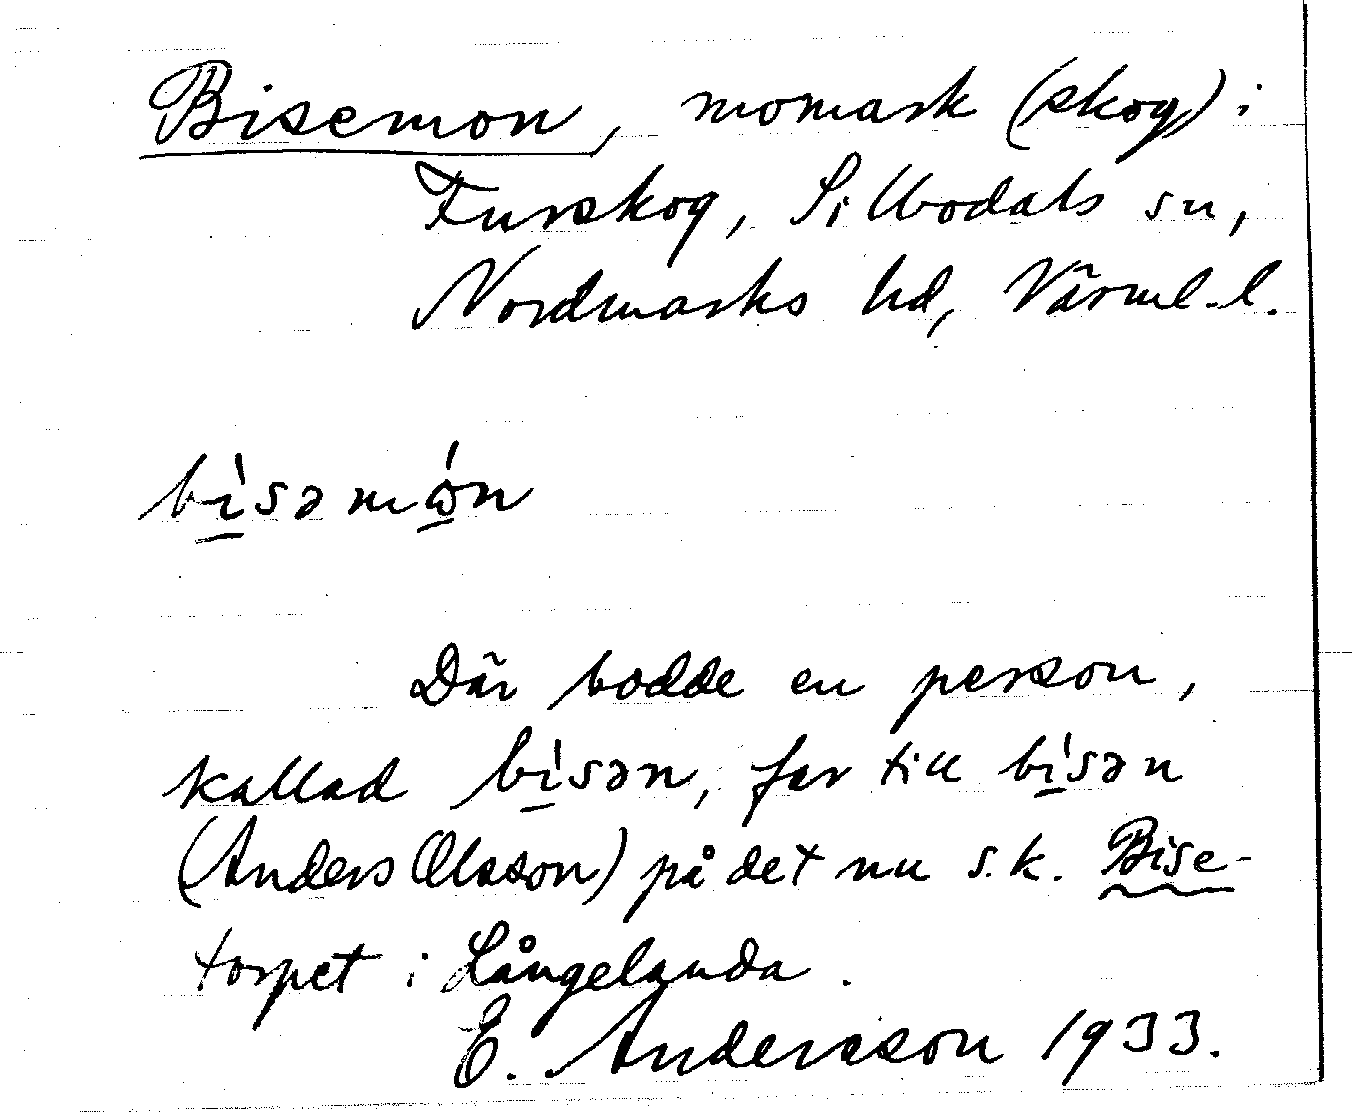 Bisemon, momark (skog) i
Furskog, Sillbodals sn,
Nordmarks hd, Värml. l.
bì̱səmɷ̱́n
Där bodde en person,
kallad bì̱sən, far till bì̱sən
(Anders Olsson) på det nu s.k. Bise-
torpet i Långelanda.
E. Andersson 1933.